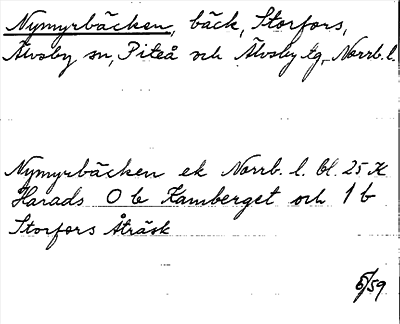 Nymyrbäcken, bäck, Storfors,
Älvsby sn, Piteå och Älvsby tg, Norrb. l.
Nymyrbäcken ek Norrb. l. bl. 25 K
Harads 0 b Kamberget och 1 b
Storfors Åträsk
6/59